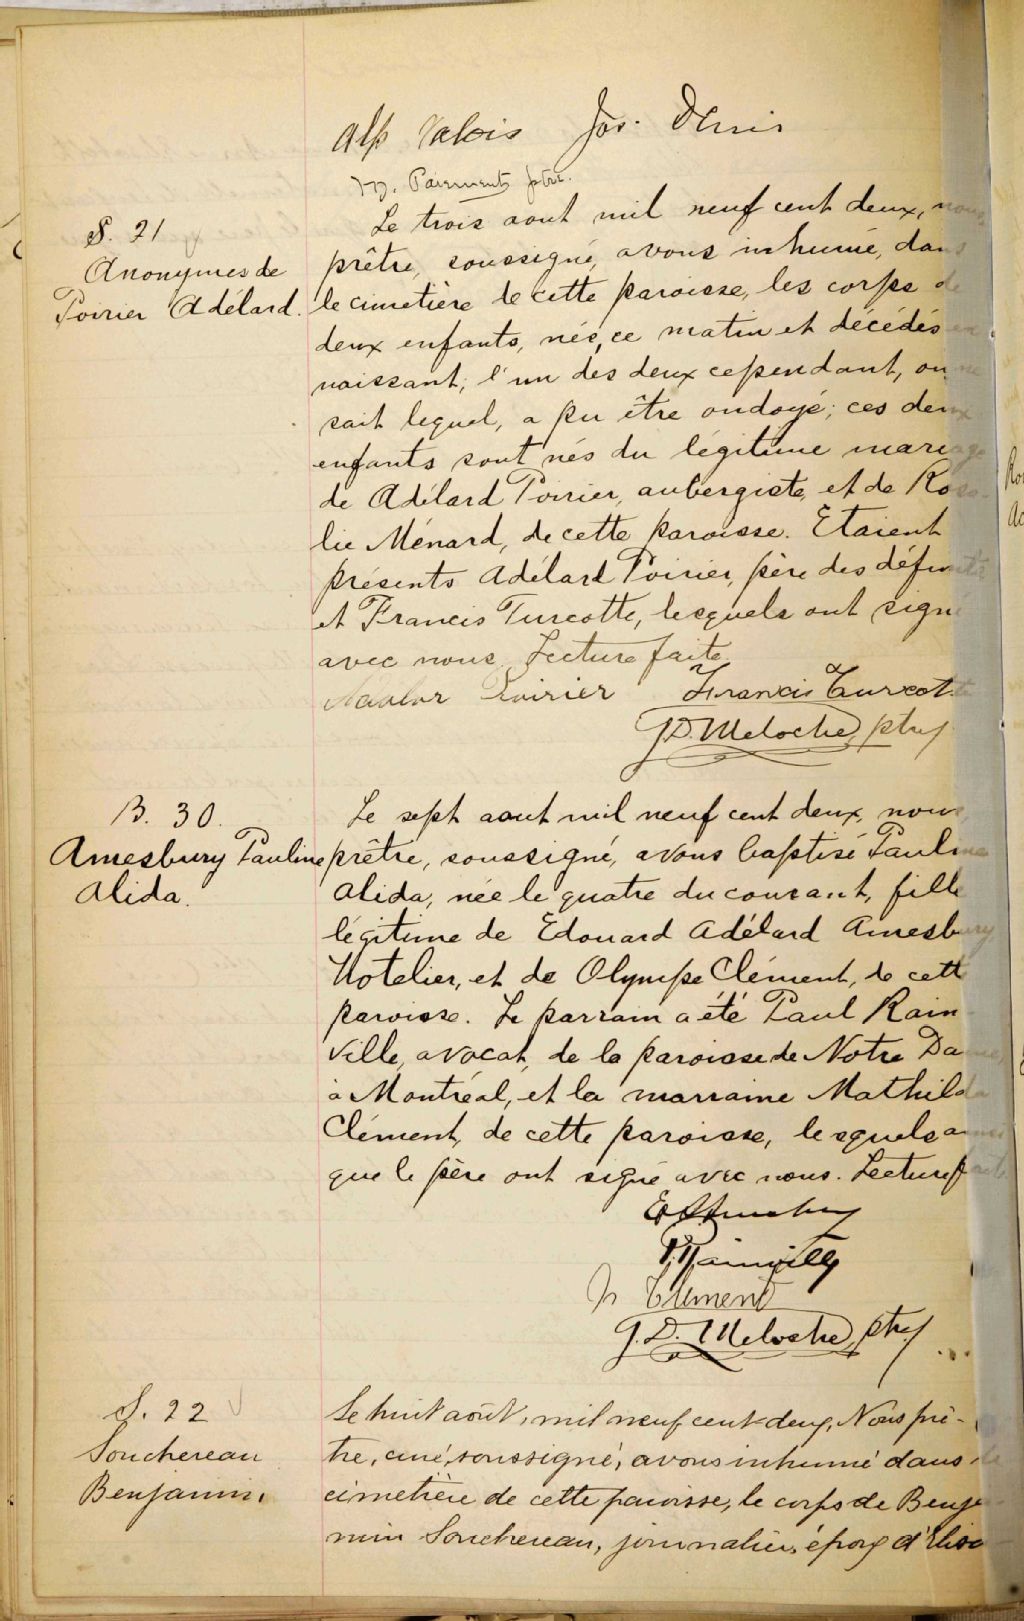 Alp Valois Jos. Denis
Paiement ptre.
S. 21
Anonymes de
Poirier Adélard.
Le trois aout mil neuf cent deux, nous
prêtre, soussigné, avons inhumé, dans
le cimetière de cette paroisse, les corps de
deux enfants, nés, ce matin et décédés en
naissant; l'un des deux cependant, on ne
sait lequel, a pu être ondoyé; ces deux
enfants sont nés du légitime mariage
de Adélard Poirier, aubergiste, et de Rosa-
lie Ménard, de cette paroisse. Etaient
présents Adélard Poirier, père des défunts
et Francis Turcotte, lesquels ont signé
avec nous. Lecture faite
Poirier Francis Turcotte
J.D. Meloche, ptre
B. 30.
Amesbury Pauline
Alida.
Le sept aout mil neuf cent deux, nous,
prêtre, soussigné, avons baptisé Pauline
Alida, née le quatre du courant, fille
légitime de Edouard Adélard Amesbury
Hotelier, et de Olympe Clément, de cette
paroisse. Le parrain a été Paul Rain-
ville, avocat, de la paroisse de Notre Dame,
à Montréal, et la marraine Mathilda
Clément, de cette paroisse, lesquels ainsi
que le père ont signé avec nous. Lecture faite
P. Rainville
Clement
J. D. Meloche, ptre
S. 22
Souchereau
Benjamin.
Le huit août, mil neuf cent-deux, Nous prê-
tre, curé, soussigné, avons inhumé dans le
cimetière de cette paroisse, le corps de Benja-
min Souchereau, journalier, époux d'Elisa